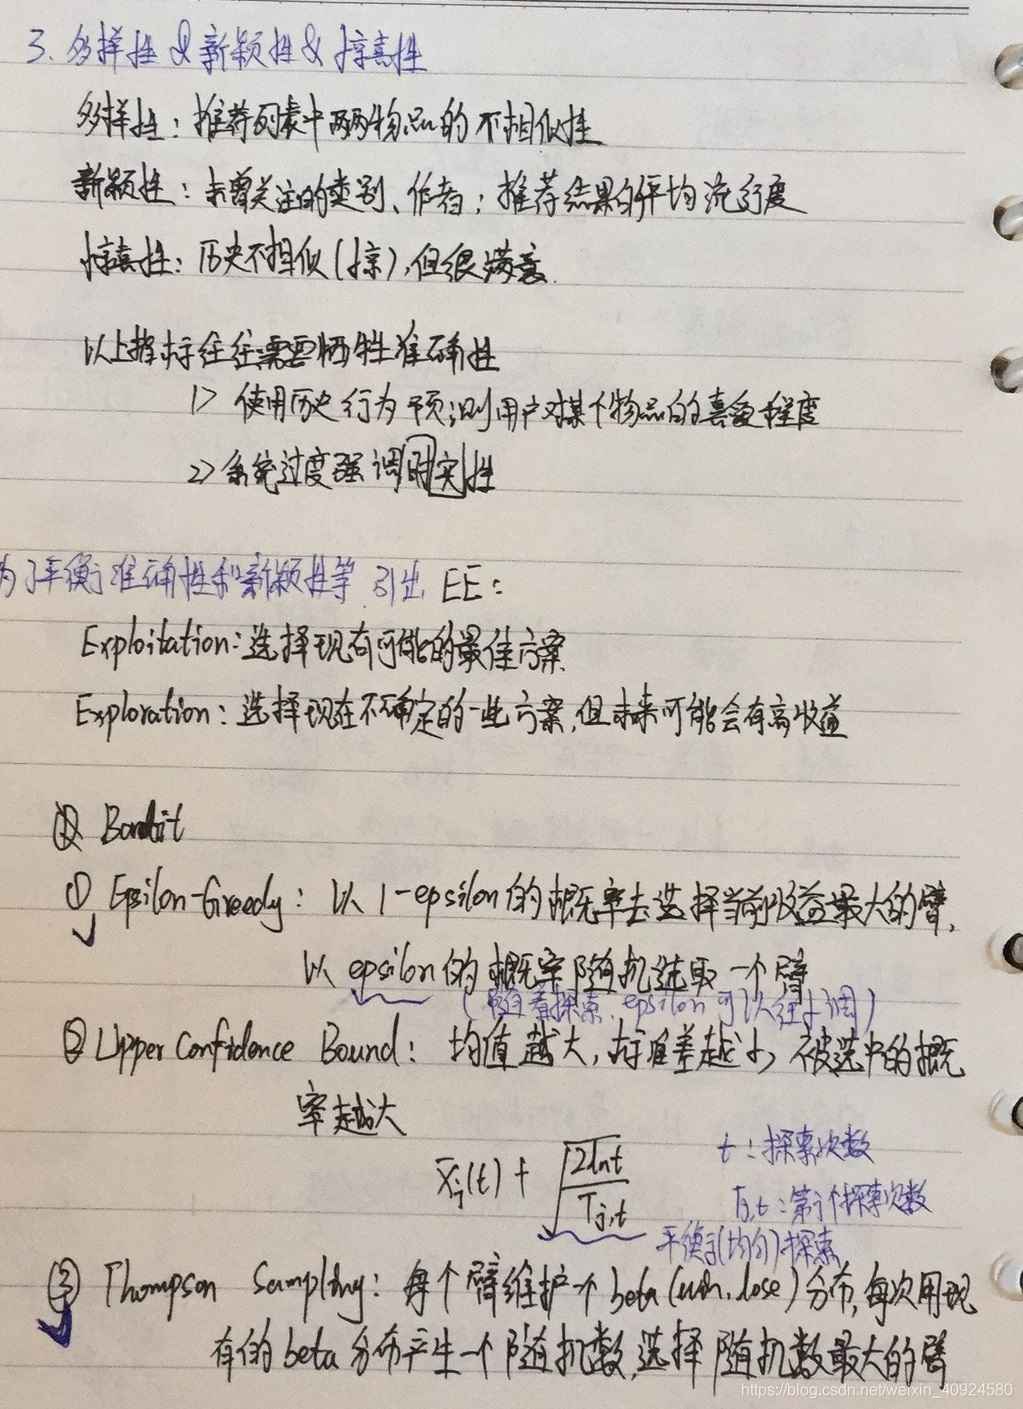 3. 多样性 & 新颖性 & 惊喜性
多样性：推荐列表中两两物品的不相似性
新颖性：未曾关注的类别、作者；推荐结果的平均流行度
惊喜性：历史不相似(惊)，但很满意.
以上指标往往需要牺牲准确性
1> 使用历史行为预测用户对某个物品的喜爱程度
2> 系统过度强调时实性
为了平衡准确性和新颖性等 引出 EE：
Exploitation：选择现有可能的最佳方案
Exploration：选择现在不确定的一些方案，但未来可能会有高收益
Bandit
① Epsilon-Greedy：以 1-epsilon 的概率去选择当前收益最大的臂，
以 epsilon 的概率随机选取一个臂
(随着探索，epsilon可以往小调)
② Upper Confidence Bound：均值越大，标准差越小，被选中的概
率越大
x̄j(t) + √(2lnt / Tj,t)
t：探索次数
Tj,t：第j个探索次数
平衡j(均匀)探索
③ Thompson Sampling：每个臂维护一个 beta(win, lose)分布，每次用现
有的 beta 分布产生一个随机数，选择随机数最大的臂
https://blog.csdn.net/weixin_40924580